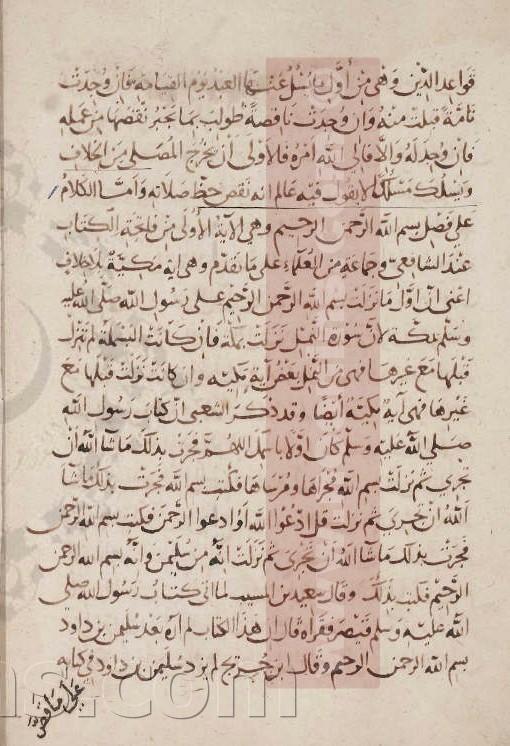 قواعد الدين وهي من أول ما يسئل عنها العبد يوم القيامة فان وجدت
تامة قبلت منه وان وجدت ناقصة طولب بما يجبر نقصها من عمله
فان وجد له والا فالى الله امره فالاولى ان يخرج المصلى من الخلاف
ويسلك مسلكا لا يقول فيه عالم انه نقص حظ صلاته واما الكلام
على فضل بسم الله الرحمن الرحيم وهي الاية الاولى من فاتحة الكتاب
عند الشافعي وجماعة من العلماء على ما تقدم وهي اية مكية بلا خلاف
اعنى ان اول ما نزلت بسم الله الرحمن الرحيم على رسول الله صلى الله عليه
وسلم بمكة لان سورة النمل نزلت بمكة فان كانت البسملة لم تنزل
قبلها مع غيرها فهي من النمل بعض آية مكية وان كانت نزلت قبلها مع
غيرها فهي آية مكية أيضا وقد ذكر الشعبي ان كتاب رسول الله
صلى الله عليه وسلم كان اولا باسمك اللهم فجرت بذلك ما شا الله ان
تجرى ثم نزلت بسم الله مجراها ومرساها فكتب بسم الله فجرت بذلك ما شا
الله ان تجرى ثم نزلت قل ادعوا الله او ادعوا الرحمن فكتب بسم الله الرحمن
فجرت بذلك ما شا الله ان تجرى ثم نزلت انه من سليمن وانه بسم الله الرحمن
الرحيم فكتب بذلك وقال سعيد بن المسيب لما اتى كتاب رسول الله صلى
الله عليه وسلم قيصر فقراه قال ان هذا الكتاب لم اره بعد سليمن بن داود
بسم الله الرحمن الرحيم وقال ابن جريج لم يزد سليمن بن داود في كتابه
على ما قص